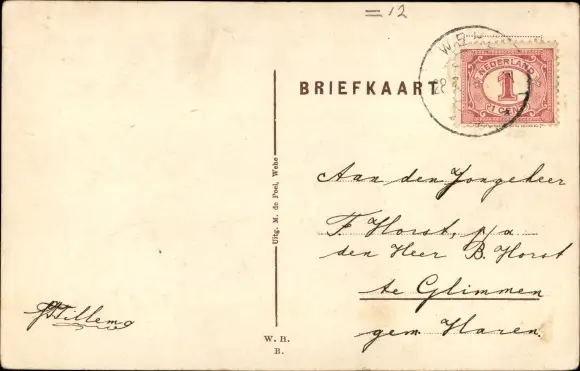 = 12
BRIEFKAART
NEDERLAND
1
CENT
Uitg. M. de Poel, Wehe
Aan den Jongeheer
F. Horst, p/a
den Heer B. Horst
te Glimmen
gem. Haren.
W. H.
B.